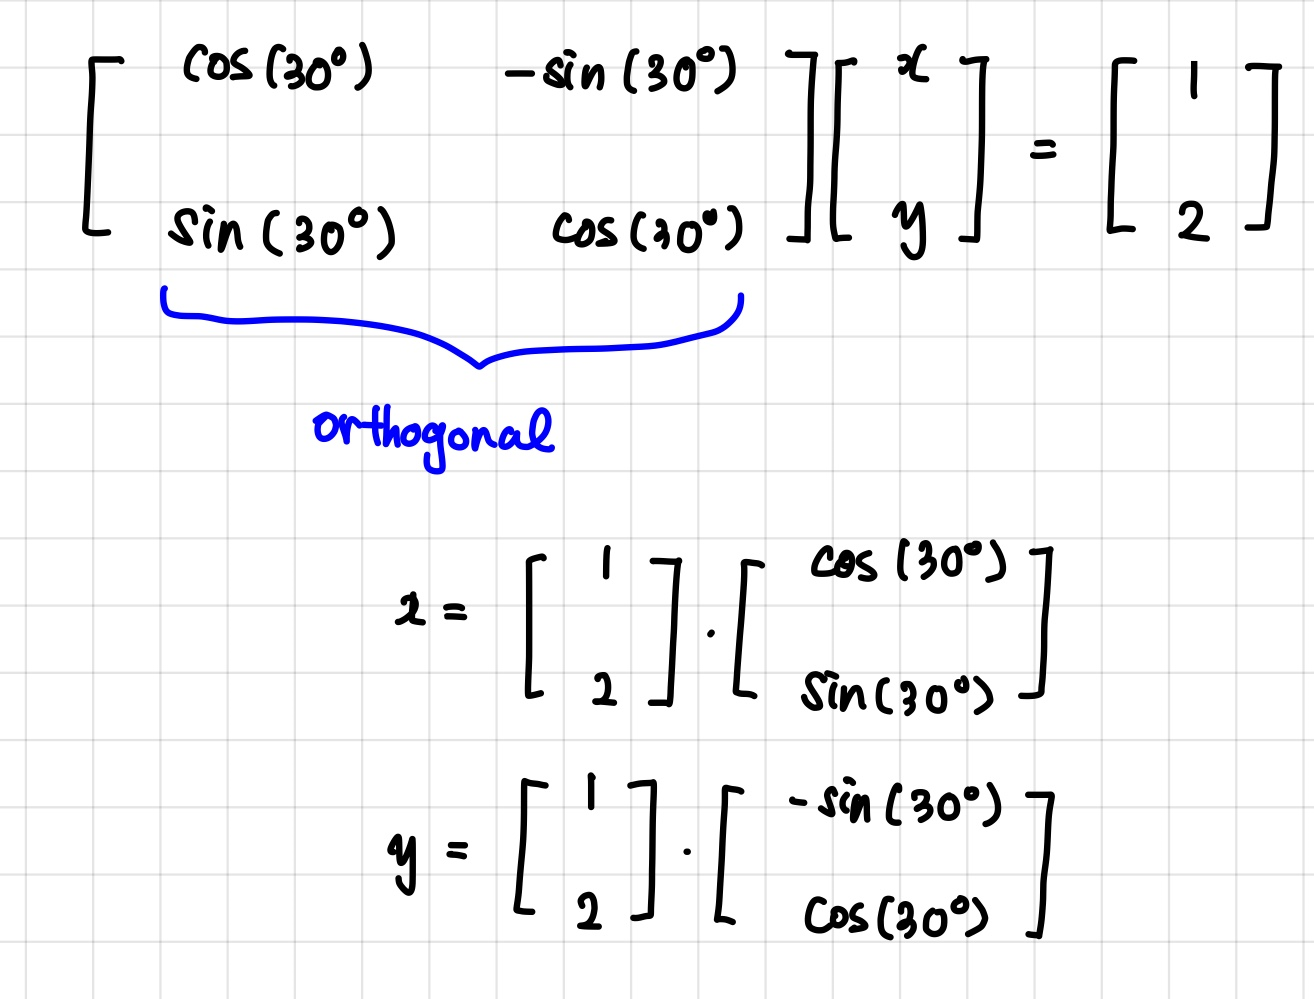 [ cos(30°) -sin(30°) ] [ x ] = [ 1 ]
[ sin(30°) cos(30°) ] [ y ] [ 2 ]
orthogonal
x = [ 1 ] · [ cos(30°) ]
[ 2 ] [ sin(30°) ]
y = [ 1 ] · [ -sin(30°) ]
[ 2 ] [ cos(30°) ]